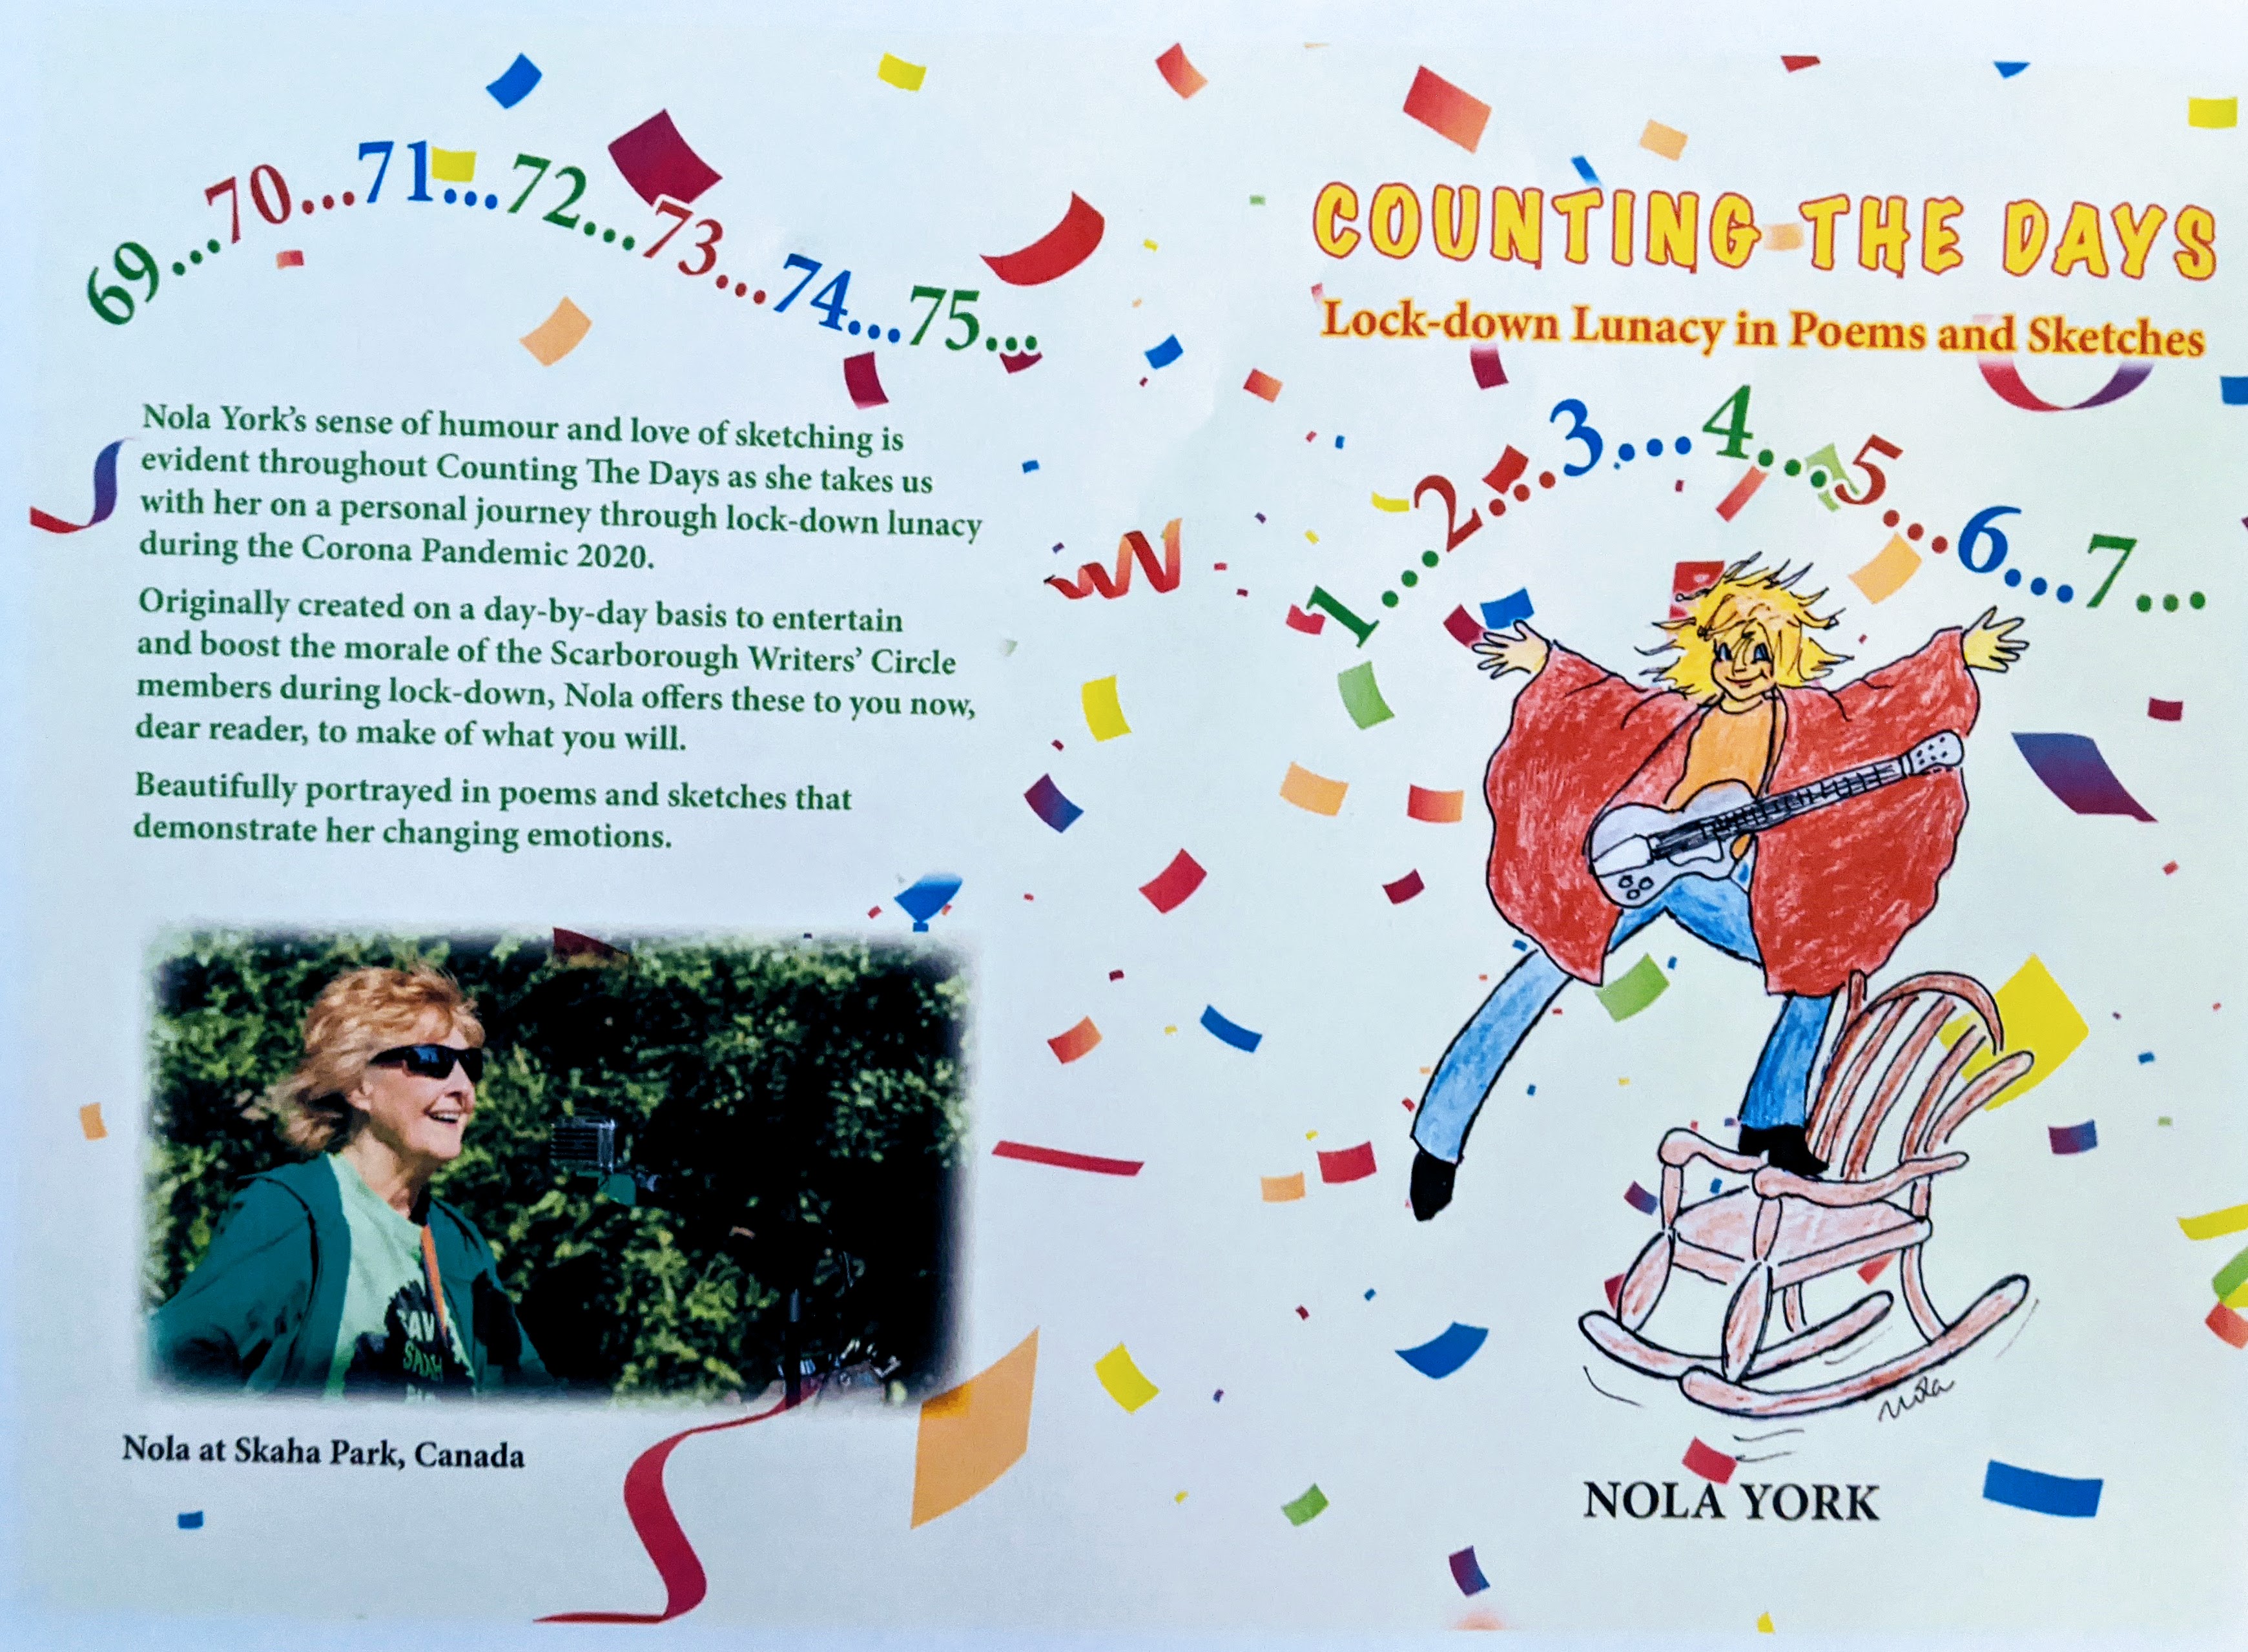 69...70...71...72...73...74...75...
Nola York's sense of humour and love of sketching is
evident throughout Counting The Days as she takes us
with her on a personal journey through lock-down lunacy
during the Corona Pandemic 2020.
Originally created on a day-by-day basis to entertain
and boost the morale of the Scarborough Writers' Circle
members during lock-down, Nola offers these to you now,
dear reader, to make of what you will.
Beautifully portrayed in poems and sketches that
demonstrate her changing emotions.
Nola at Skaha Park, Canada
COUNTING THE DAYS
Lock-down Lunacy in Poems and Sketches
1...2...3...4...5...6...7...
Nola
NOLA YORK